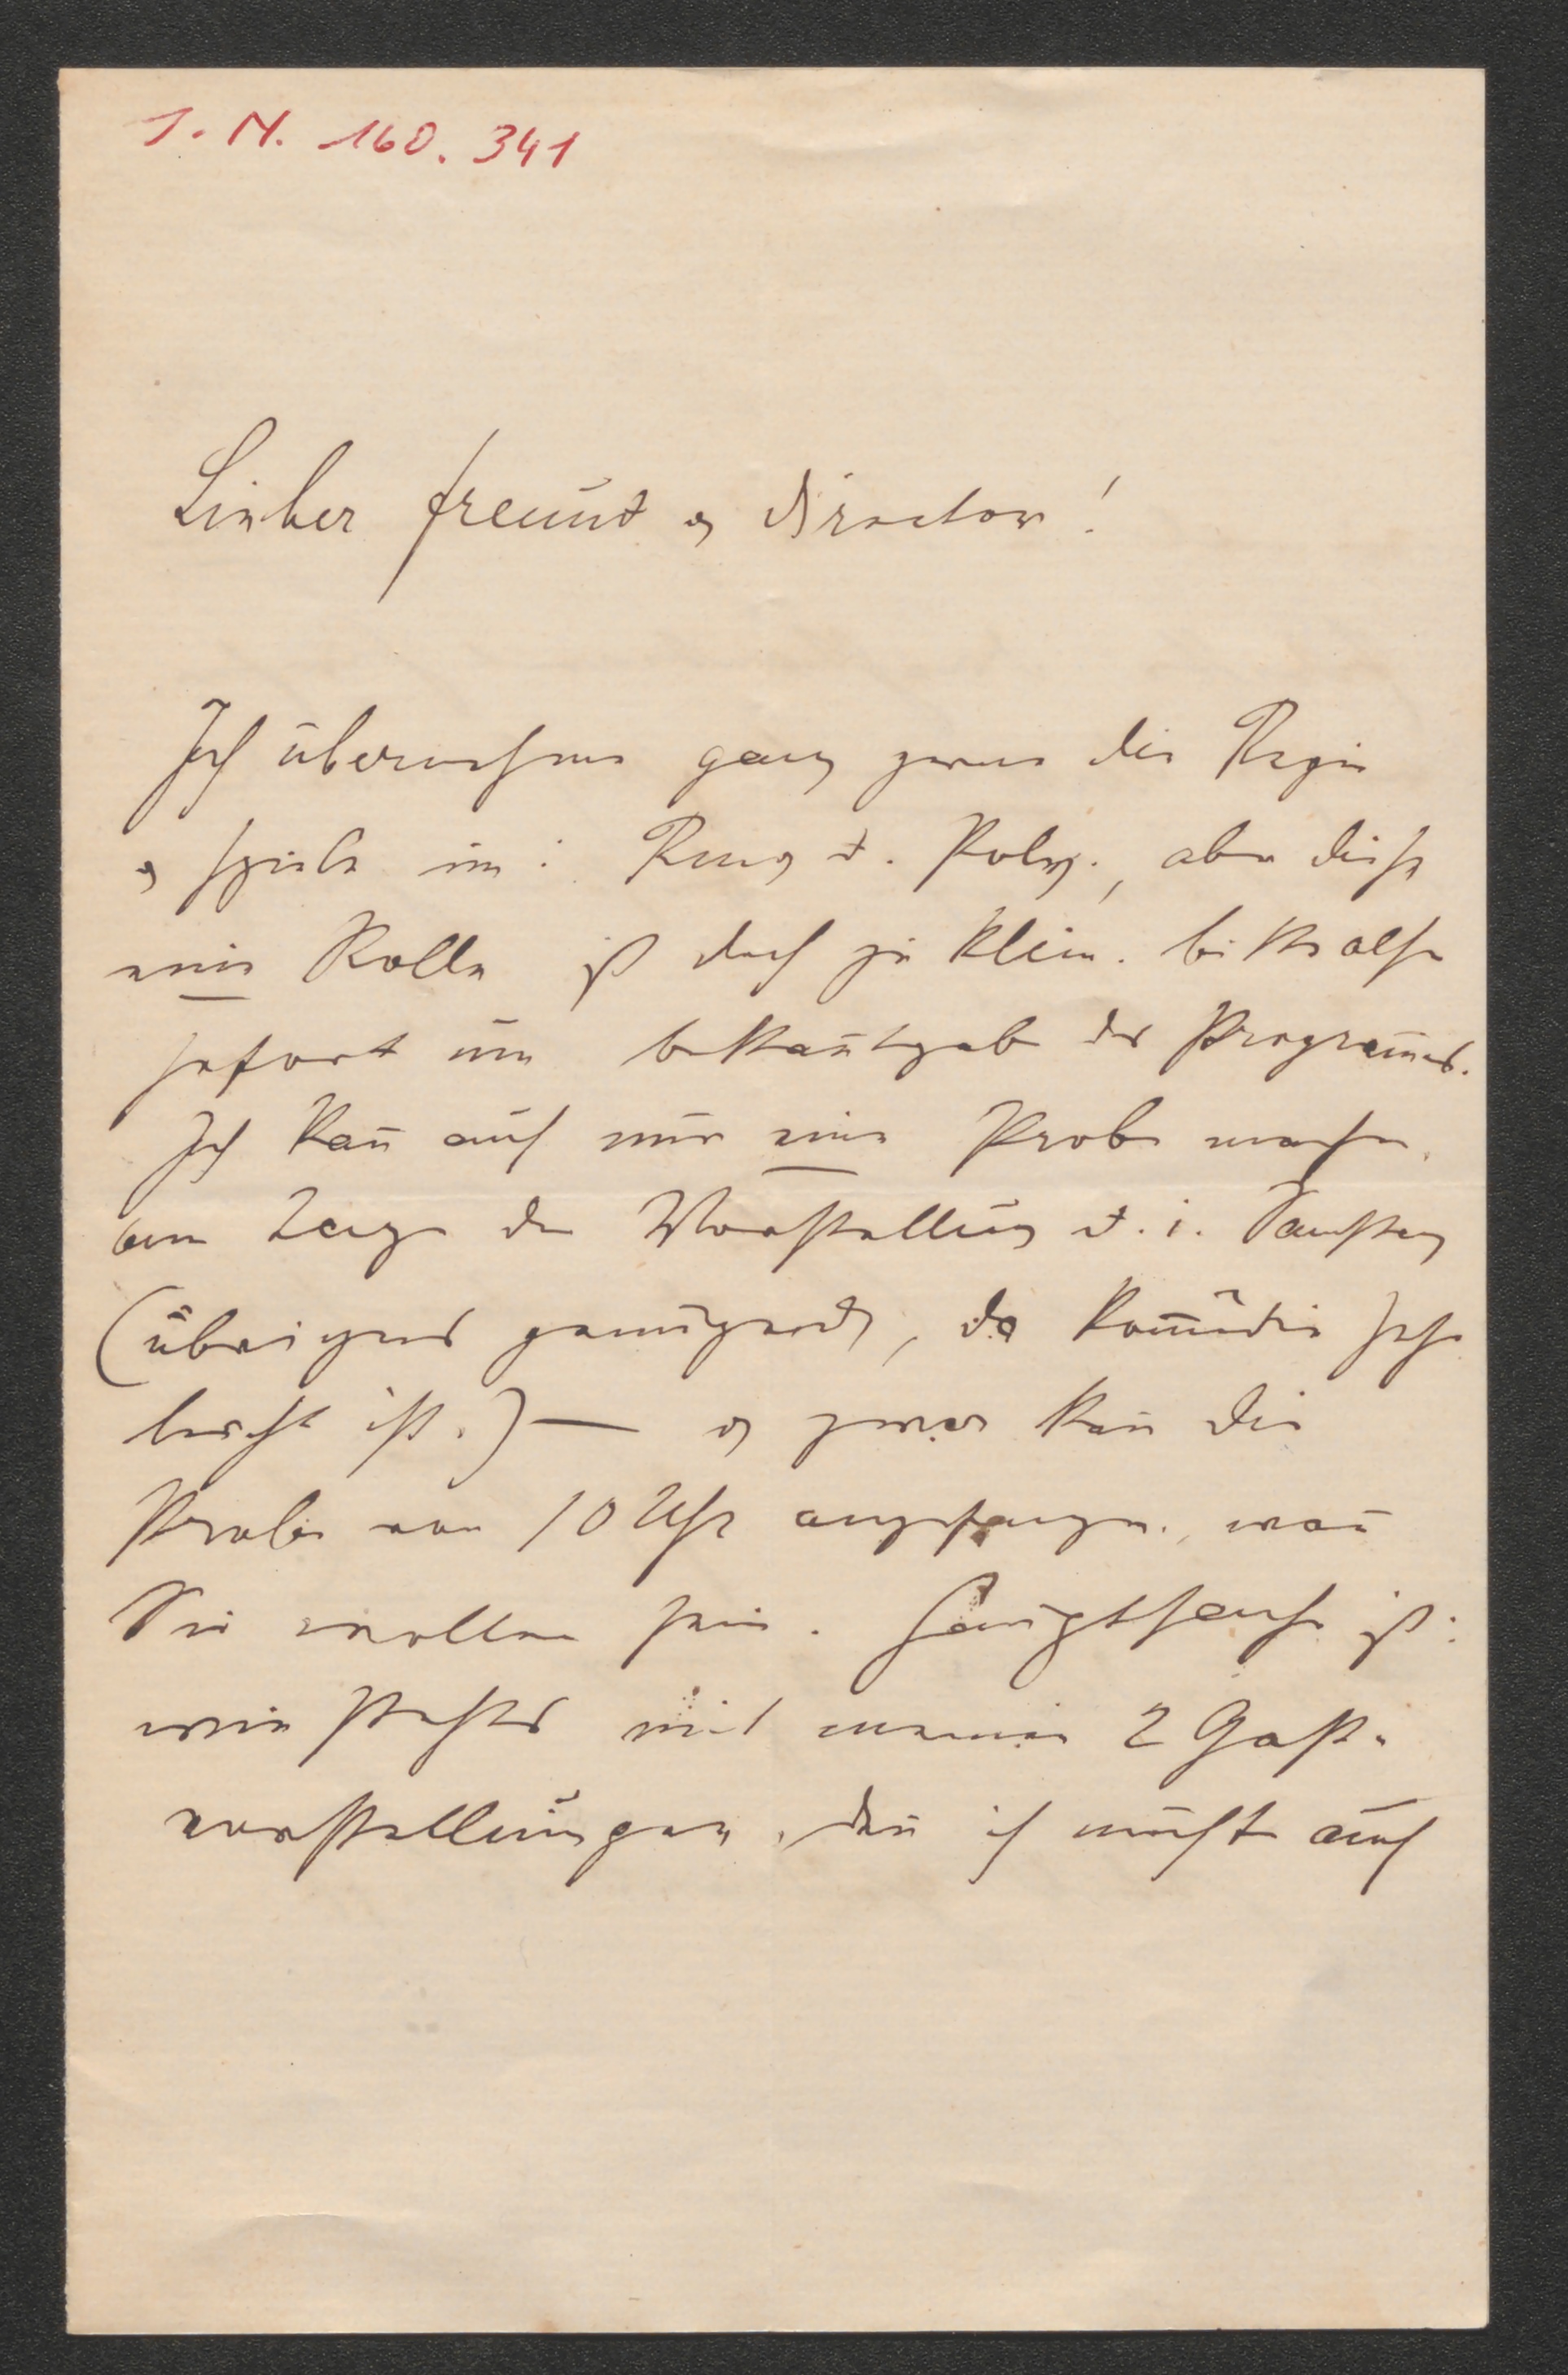 I. N. 160.341
Lieber Freund & Director!
Ich übernehme ganz gerne die Regie
& spiele im: Ring d. Polyk., aber diese
eine Rolle ist doch zu klein. bitte also
sofort um bekañtgabe des Programmes.
Ich kañ auch nur eine Probe machen
am Tage der Vorstellung d. i. Samstag
(übrigens genügend, da Komödie sehr
leicht ist.) — & zwar kañ die
Probe von 10 Uhr angefangen, wañ
Sie wollen sein. Hauptsache ist:
wie steht's mit meinen 2 Gast-
vorstellungen, deñ ich müßte auch